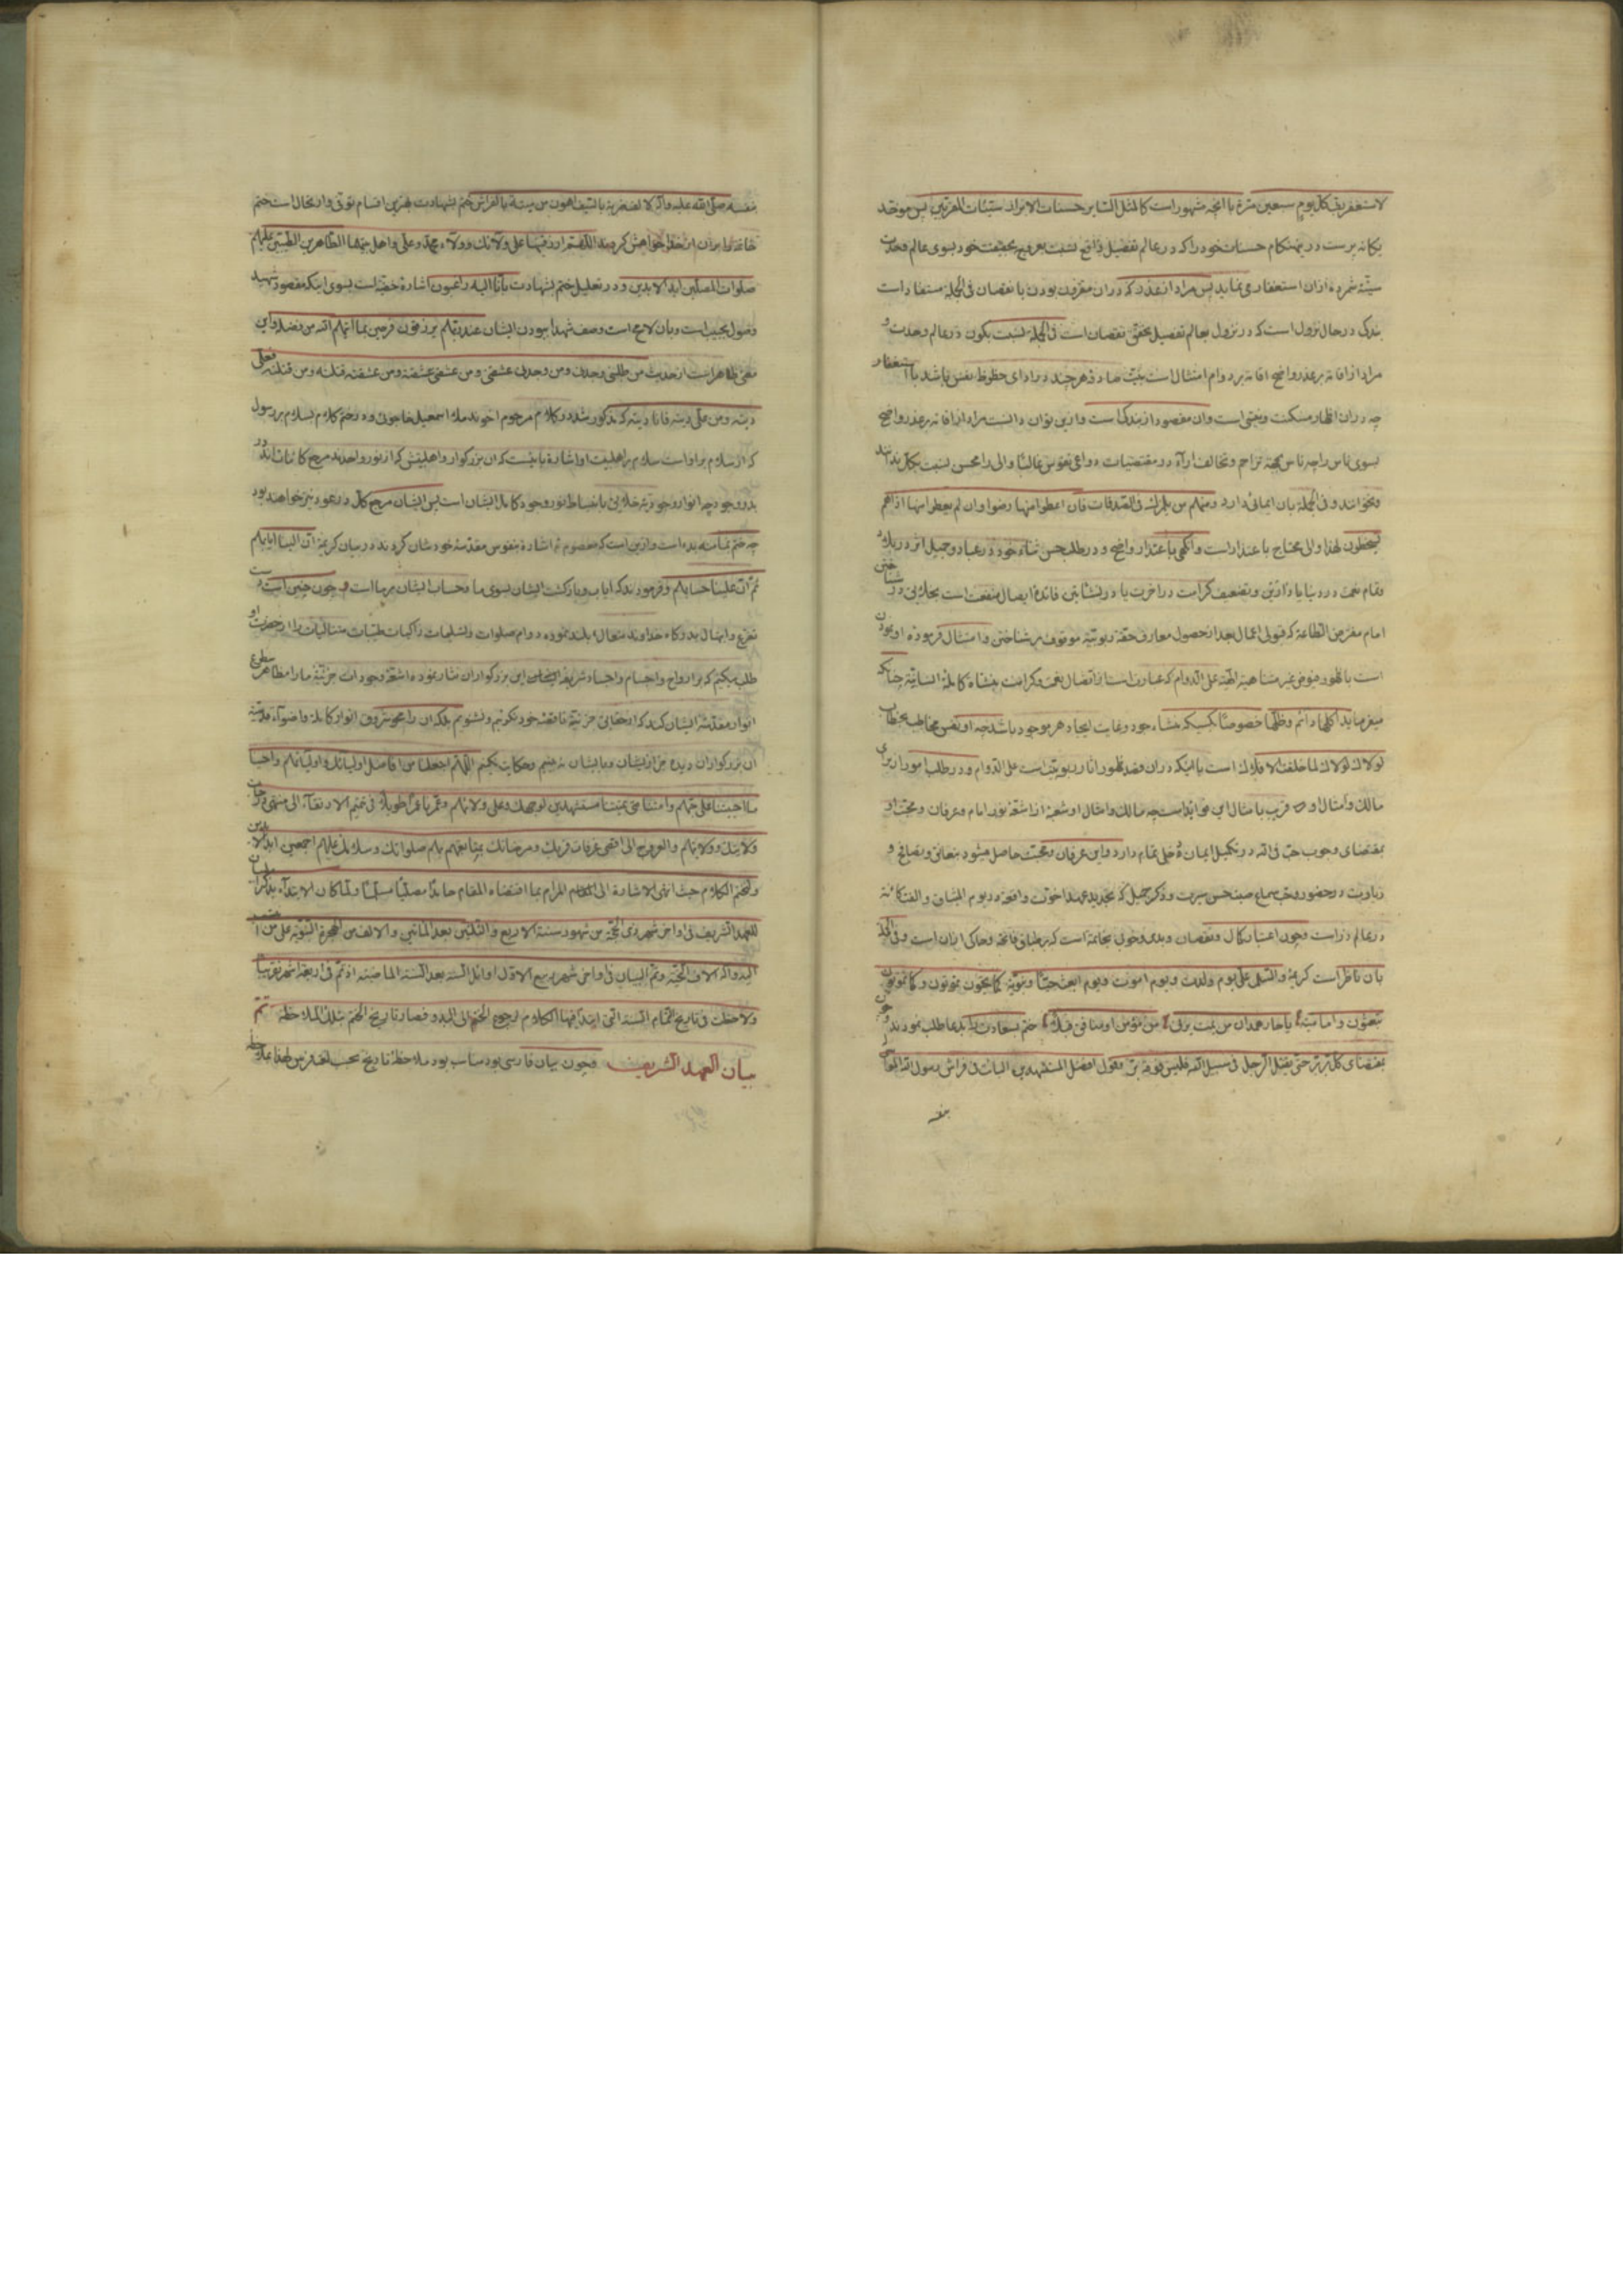 لاستغفر فی کل یوم سبعین مرة با آنچه مشهور است کالمثل السایر حسنات الابرار سیئات المقربین پس موحد
یگانه پرست در هنگام حسنات خود را که در عالم تفصیل واقع نسبت بحقیقت خود بسوی عالم وحدت
سیئه شمرده ازان استغفار می نماید پس مراد از عذر که دران مقرون بودن با نقصان فی الجمله مستفاد است
بندگی در حال نزول است که در نزول بعالم تفصیل تحقق نقصان است فی الجمله نسبت بکون در عالم وحدت و
مراد از اقامه بر عذر واضح اقامه بر دوام امتثال است به نیت صادق هر چند در ادای حظوظ نفس باشد با استغفار
چه دران اظهار مسکنت و نیستی است وان مقصود از بندگی است وازین توان دانست مراد از اقامه بر عذر واضح
بسوی ناس را چه ناس بجهة تزاحم و تخالف آراء در مقتضیات دواعی نفوس غالبا والی را محسن نسبت بکل ندانند
ونخوانند و فی الجمله بان ایمائی دارد ومنهم من یلمزک فی الصدقات فان اعطوا منها رضوا وان لم یعطوا منها اذا هم
یسخطون لهذا والی محتاج با عتذار است وانگهی با عتذار واضح و در طلب حسن ثناء خود در عباد و جمیل اثر در بلاد
وتمام نعمت در دنیا یا دارین وتضعیف کرامت در آخرت یا در نشأتین فائده ایصال منفعت است بخلایق در شناختن
امام مفترض الطاعة که قبولی اعمال بعد از حصول معارف حقه ربوبیه موقوف بر شناختن و امتثال فرموده او بودن
است با ظهور فیوض غیر متناهیة الهیه علی الدوام که عبارت است از اتصال نعمت وکرامت بنشأه کامله انسانیه چنانکه
میفرماید اکلها دائم وظلها خصوصا بکسیکه منشاء جود وغایت ایجاد هر موجود باشد چه او نفس مخاطب بخطاب
لولاک لولاک لما خلقت الافلاک است با اینکه دران قصد ظهور آثار ربوبیت است علی الدوام و در طلب امور از برای
مالک وامثال او قریب با مثال این فوائد است چه مالک وامثال او شعبه از اشعه نور امام وعرفان و محبت او
بمقتضای وجوب حب فی الله در تکمیل ایمان دخلی تمام دارد واین عرفان ومحبت حاصل میشود بتعانق وبصایح و
زیاریت در حضور و بسماع صیت حسن سیرت وذکر جمیل که تجدید عهد اخوت واقعه در یوم المیثاق والفت کائنه
در عالم ذر است وچون اعتبار کمال ونقصان وبدی وخوبی بخاتمه است که بر طباق فاتحه وحاکی ازان است وفی الجمله
بان ناظر است کریمه والسلام علی یوم ولدت ویوم اموت ویوم ابعث حیا ونبویه کما تعیشون تموتون وکما تموتون
تبعثون وامامیه یا حار همدان من یمت یرنی من مؤمن او منافق قبلا ختم بسعادت را بدعا طلب نمودند وچون
بمقتضای کل بر بر حتی یقتل الرجل فی سبیل الله فلیس فوقه بر وقول افضل المستشهدین البائت فی فراش رسول الله الواقی
بنفسه
بنفسه صلی الله علیه وآله لالف ضربة بالسیف اهون من میتة بالفراش ختم بشهادت بهترین اقسام نوقی وارتحال است ختم
خاتمه را بران از خدا خواهش کردند اللهم ارزقنیها علی ولائک وولاء محمد وعلی واهل بیتهما الطاهرین الطیبین علیهم
صلوات المصلین ابد الابدین ودر تعلیل ختم بشهادت بانا الیه راجعون اشاره خفیه است بسوی اینکه مقصود شهید
وصول بحبیب است وبان لامح است وصف شهدا ببودن ایشان عند ربهم یرزقون فرحین بما آتیهم الله من فضله واین
معنی ظاهر است از حدیث من طلبنی وجدنی ومن وجدنی عشقنی ومن عشقنی عشقته ومن عشقته قتلته ومن قتلته فعلی
دیته ومن علی دیته فانا دیته که مذکور شد در کلام مرحوم آخوند ملا اسمعیل خاجوئی ودر ختم کلام بسلام بر رسول
که از سلام براو است سلام بر اهلبیت او اشاره بانیست که ان بزرگوار واهلبیتش که از نور واحدند مرجع کائناتند در
بدو وجود چه انوار وجودیه خلایق بانبساط نور وجود کامل ایشان است پس ایشان مرجع کل در عود نیز خواهند بود
چه ختم بمثابه بدء است وازین است که معصوم ع اشاره بنفوس مقدسه خودشان کردند در بیان کریمه ان الینا ایابهم
ثم ان علینا حسابهم وفرمودند که ایاب وبازگشت ایشان بسوی ما وحساب ایشان بر ما است و چون چنین است
تضرع وابتهال بدرگاه خداوند متعال بلند نموده دوام صلوات وتسلیمات زاکیات طیبات متتالیات را از حضرت او
طلب میکنیم که بر ارواح واجسام واجساد شریفه این بزرگواران نثار نموده اشعه وجودات جزئیه ما را مظاهر سطوع
انوار مقدسه ایشان کند که از حقایق جزئیه ناقصه خود نگوئیم ونشنویم بلکه ان را محو شروق انوار کامله واضواء قدسیه
ان بزرگواران دیده جز از ایشان وبایشان نه بینیم وحکایت نکنیم اللهم اجعلنا من افاضل اولیائک واولیائهم واحینا
ما احییتنا علی حبهم وامتنا متی تمیتنا مستشهدین لوجهک وعلی ولائهم وعمرنا عمرا طویلا فی تتمیم الارتقاء الی منتهی درجات
ولایتک وولائهم والعروج الی اقصی غرفات قربک ومرضاتک بمتابعتهم بهم صلواتک وسلامک علیهم اجمعین ابد الابدین
ولنختم الکلام حیث انتهی الاشارة الی المرام بما اقتضاه المقام حامدا مصلیا مسلما ولما کان الابتداء بذکر
للعهد الشریف فی اواخر شهر ذی الحجة من شهور سنة الاربع والثلثین بعد المأتین والالف من الهجرة النبویة علی
الیه وآله آلاف التحیة وتم البیان فی اواخر شهر ربیع الاول اوائل السنة بعد السنة الماضیة اذ تم فی اربعة اشهر تقریبا
ولاحظت فی تاریخ التمام السنة التی ابتدأ فیها الکلام لرجوع الختم الی البدو فصار تاریخ الختم بتلک الملاحظة تم
بیان العهد الشریف وچون بیان فارسی بود مناسب بود ملاحظه تاریخ بحسب